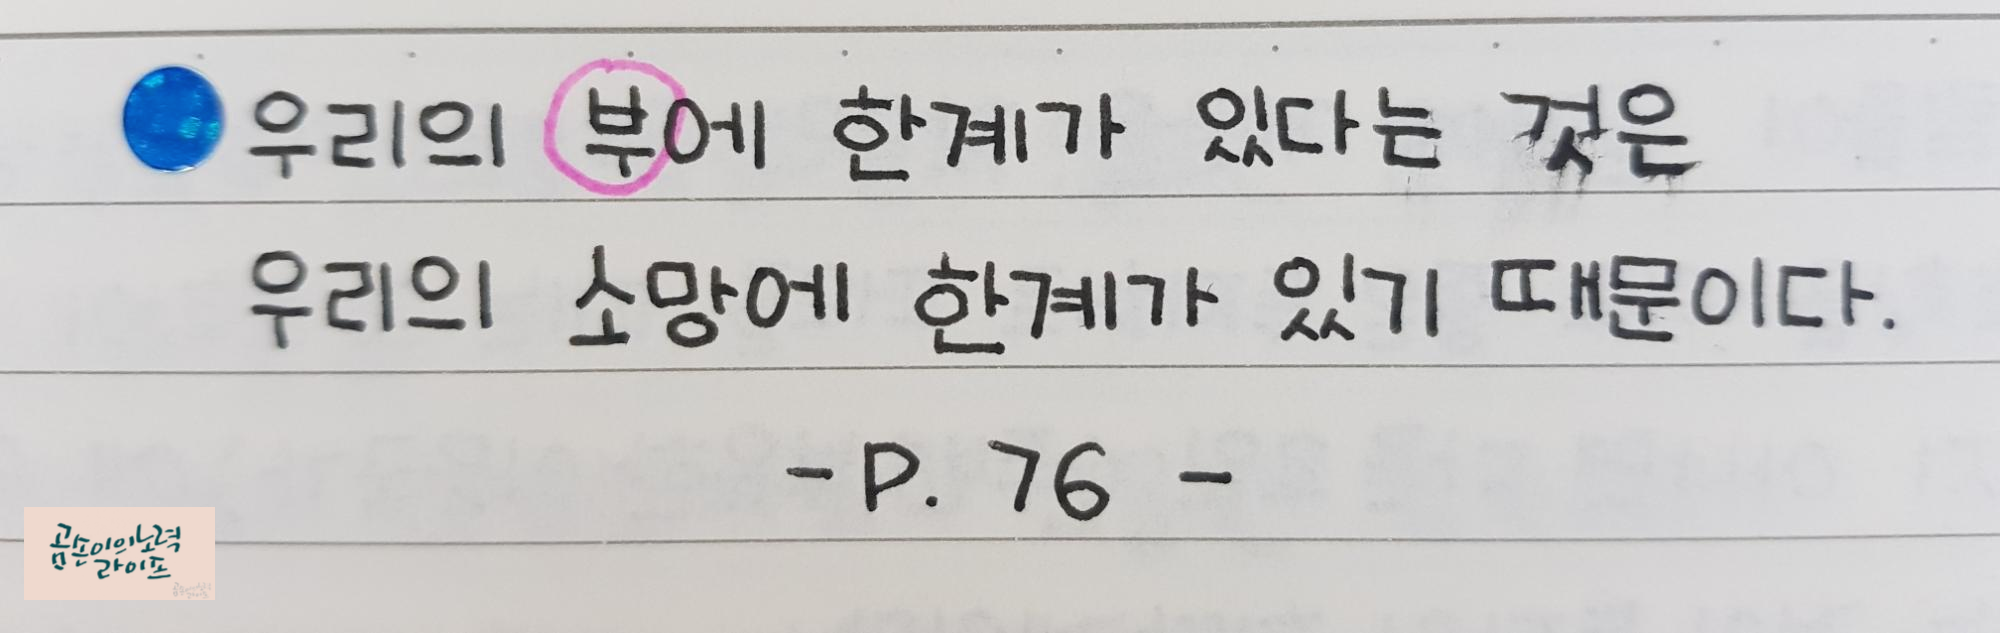 우리의 부에 한계가 있다는 것은
우리의 소망에 한계가 있기 때문이다.
- P. 76 -
곰손이의노력
라이프